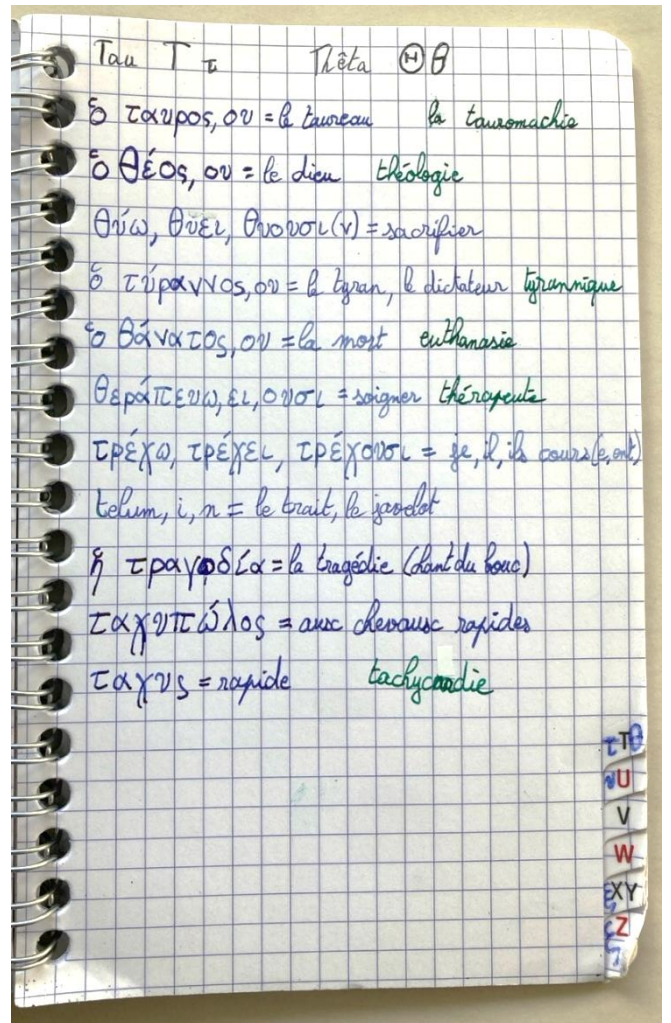 Tau T τ Thêta Θ θ
ὁ ταυρος, ου = le taureau la tauromachie
ὁ θέος, ου = le dieu théologie
θύω, θύει, θυουσι(ν) = sacrifier
ὁ τύραννος, ου = le tyran, le dictateur tyrannique
ὁ θάνατος, ου = la mort euthanasie
θεράπευω, ει, ουσι = soigner thérapeute
τρέχω, τρέχει, τρέχουσι = je, il, ils cours(e, ent)
telum, i, n = le trait, le javelot
ἡ τραγῳδία = la tragédie (chant du bouc)
ταχυπώλος = aux chevaux rapides
ταχυς = rapide tachycardie
τ T θ
U
V
W
ξ XY
ζ Z